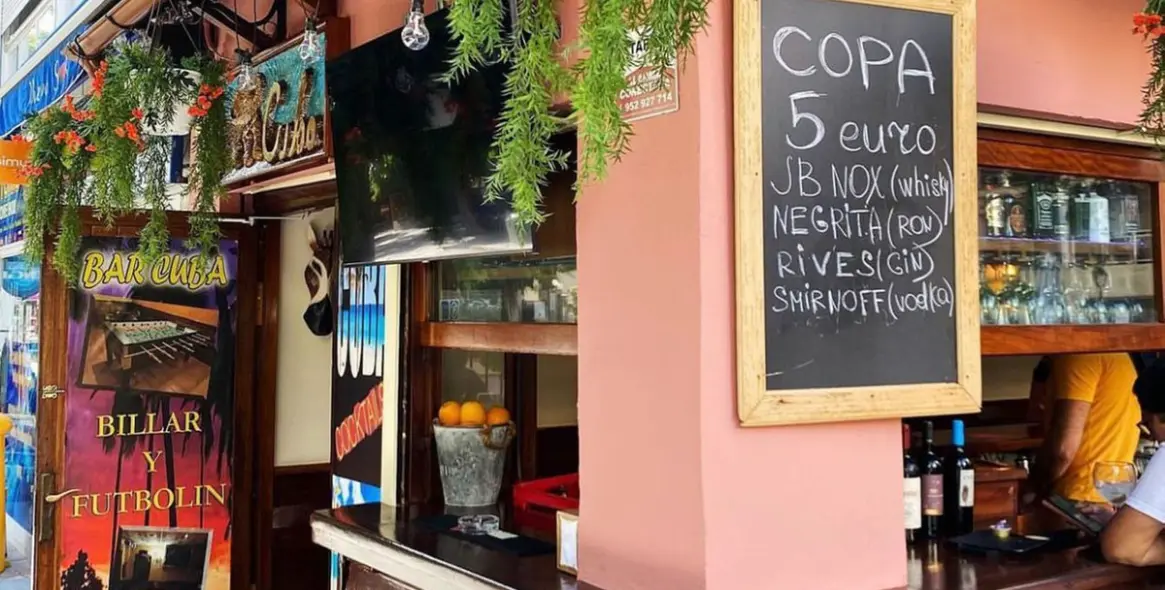 Cuba
BAR CUBA
BILLAR
Y
FUTBOLIN
COCKTAILS
952 927 714
COPA
5 euro
JB NOX (whisky)
NEGRITA (RON)
RIVES (GIN)
SMIRNOFF (vodka)